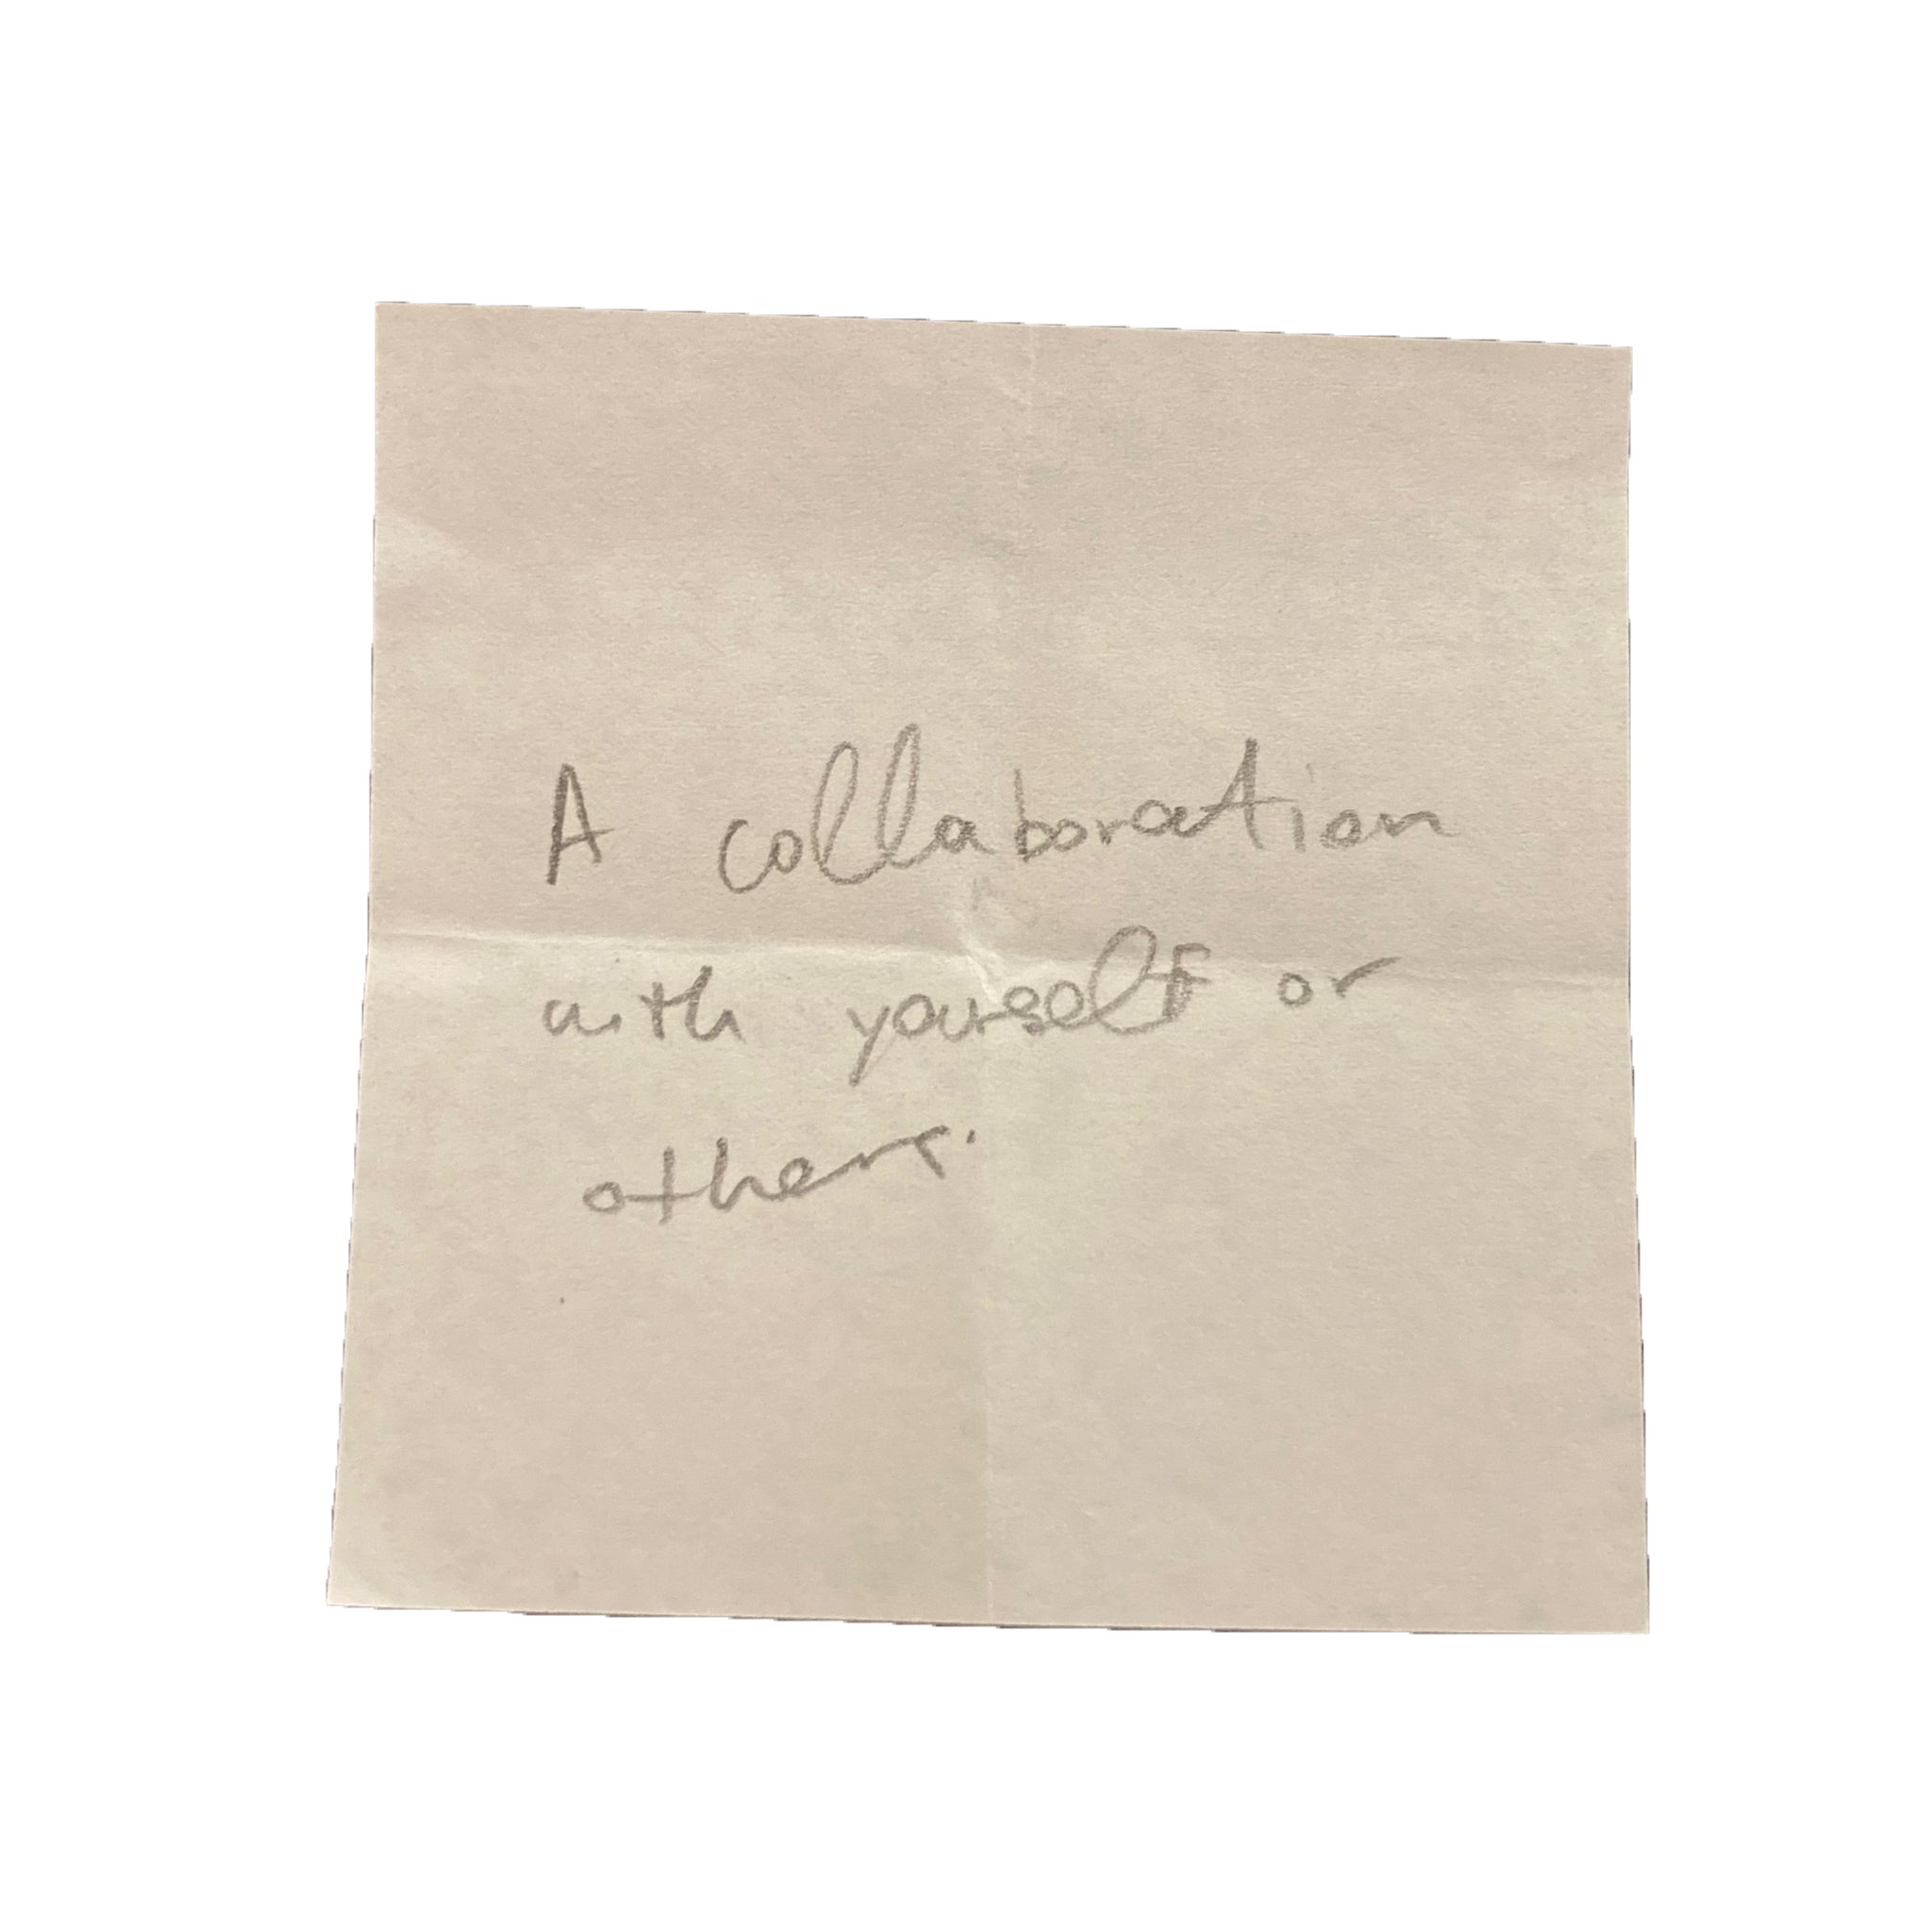 A collaboration
with yourself or
others.